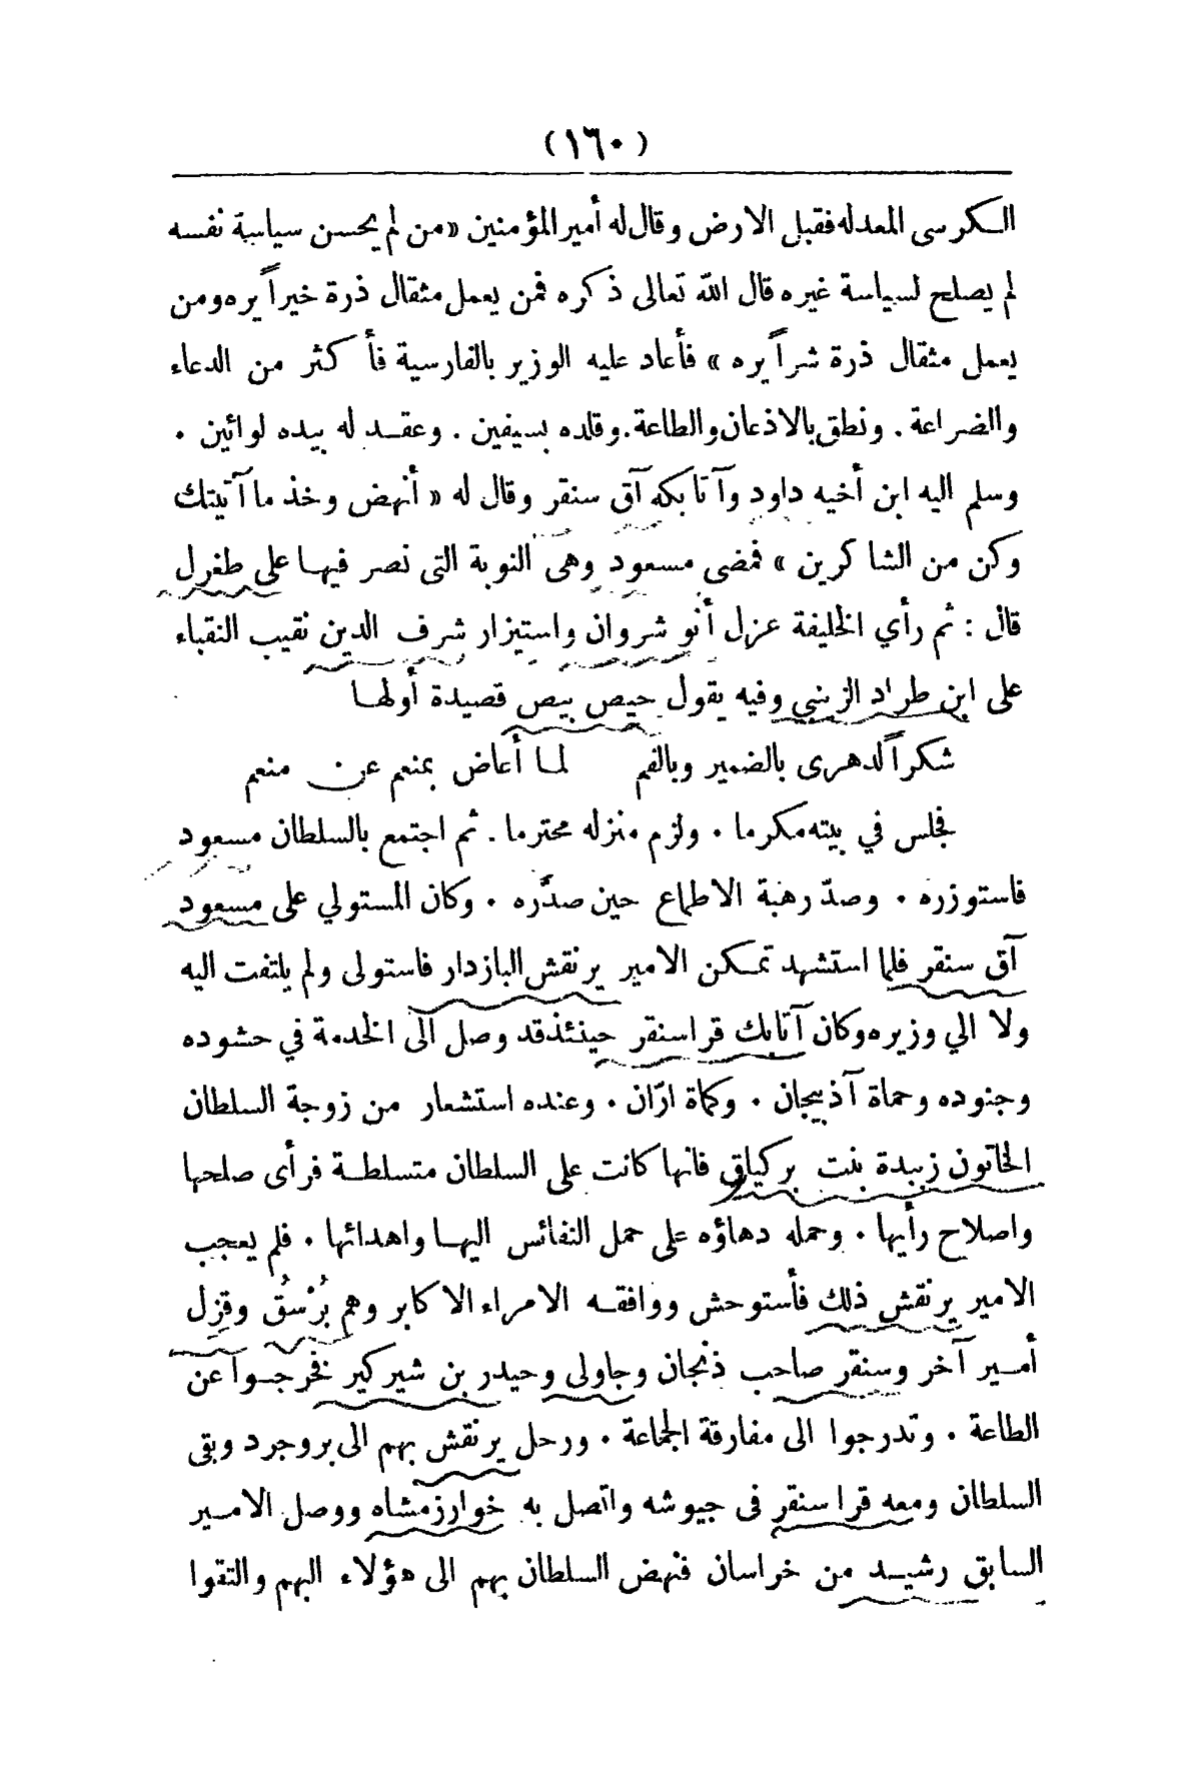 (١٦٠)
الكرسى المعدله فقبل الارض وقال له أمير المؤمنين «من لم يحسن سياسة نفسه
لم يصلح لسياسة غيره قال الله تعالى ذكره فمن يعمل مثقال ذرة خيراً يره ومن
يعمل مثقال ذرة شراً يره » فأعاد عليه الوزير بالفارسية فأكثر من الدعاء
والضراعة . ونطق بالاذعان والطاعة . وقلده بسيفين . وعقد له بيده لوائين .
وسلم اليه ابن أخيه داود وآتابكه آق سنقر وقال له « أنهض وخذ ما آتيتك
وكن من الشاكرين » فمضى مسعود وهى النوبة التى نصر فيها على طغرل
قال : ثم رأي الخليفة عزل أنو شروان واستيزار شرف الدين نقيب النقباء
على ابن طراد الزينبي وفيه يقول حيص بيص قصيدة أولها
شكراً لدهرى بالضمير وبالفم لما أعاض بمنعم عن منعم
فجلس في بيته مكرما . ولزم منزله محترما . ثم اجتمع بالسلطان مسعود
فاستوزره . وصدّ رهبة الاطماع حين صدَّره . وكان المستولي على مسعود
آق سنقر فلما استشهد تمكن الامير يرنقش البازدار فاستولى ولم يلتفت اليه
ولا الي وزيره وكان آتابك قراسنقر حينئذ قد وصل الى الخدمة في حشوده
وجنوده وحماة آذبيجان . وكماة ارّان . وعنده استشعار من زوجة السلطان
الخاتون زبيدة بنت بركياق فانها كانت على السلطان متسلطة فرأى صلحها
واصلاح رأيها . وحمله دهاؤه على حمل النفائس اليها واهدائها . فلم يعجب
الامير يرنقش ذلك فأستوحش ووافقه الامراء الاكابر وهم بُرْسُق وقزِل
أمير آخر وسنقر صاحب ذنجان وجاولى وحيدر بن شيركير فخرجوا عن
الطاعة . وتدرجوا الى مفارقة الجماعة . ورحل يرنقش بهم الى بروجرد وبقى
السلطان ومعه قرا سنقر فى جيوشه واتصل به خوارزمشاه ووصل الامير
السابق رشيد من خراسان فنهض السلطان بهم الى هؤلاء البهم والتقوا